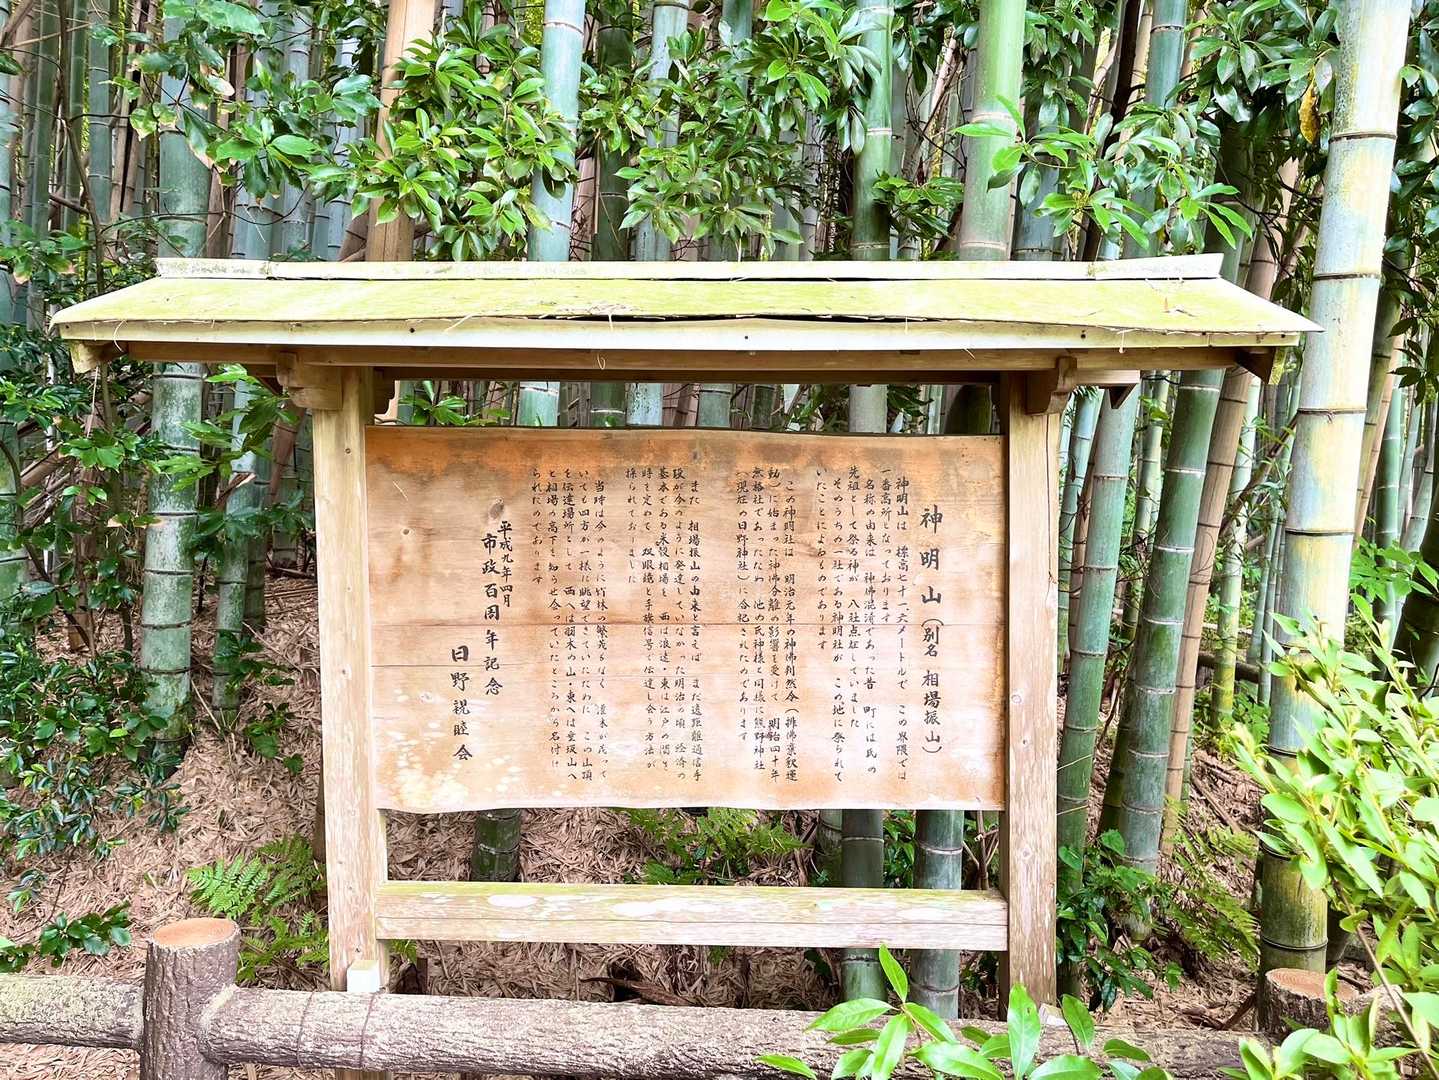 神明山(別名 相場振山)
神明山は 標高七十一・六メートルで この界隈では
一番高所となっております
名称の由来は 神佛混淆であった昔 町には氏の
先祖として祭る神が 八社点在していました
そのうちの一社である神明社が この地に祭られて
いたことによるものであります
この神明社は 明治元年の神佛判然令(排佛棄釈運
動)に始まった神佛分離の影響を受けて 明治四十年
無格社であったため 他の氏神様と同様に熊野神社
(現在の日野神社)に合祀されたのであります
また 相場振山の由来と言えば まだ遠距離通信手
段が今のように発達していなかった明治の頃 経済の
基本である米穀相場を 西は浪速・東は江戸の間を
時を定めて、双眼鏡と手旗信号で伝達し合う方法が
採られておりました
当時は今のように竹林の繁茂もなく 灌木が茂って
いても四方が一様に眺望できていたため この山頂
を伝達場所として 西へは羽木の山・東へは垂坂山へ
と相場の高下を知らせ合っていたところから名付け
られたのであります
平成九年四月
市政百周年記念
日野親睦会